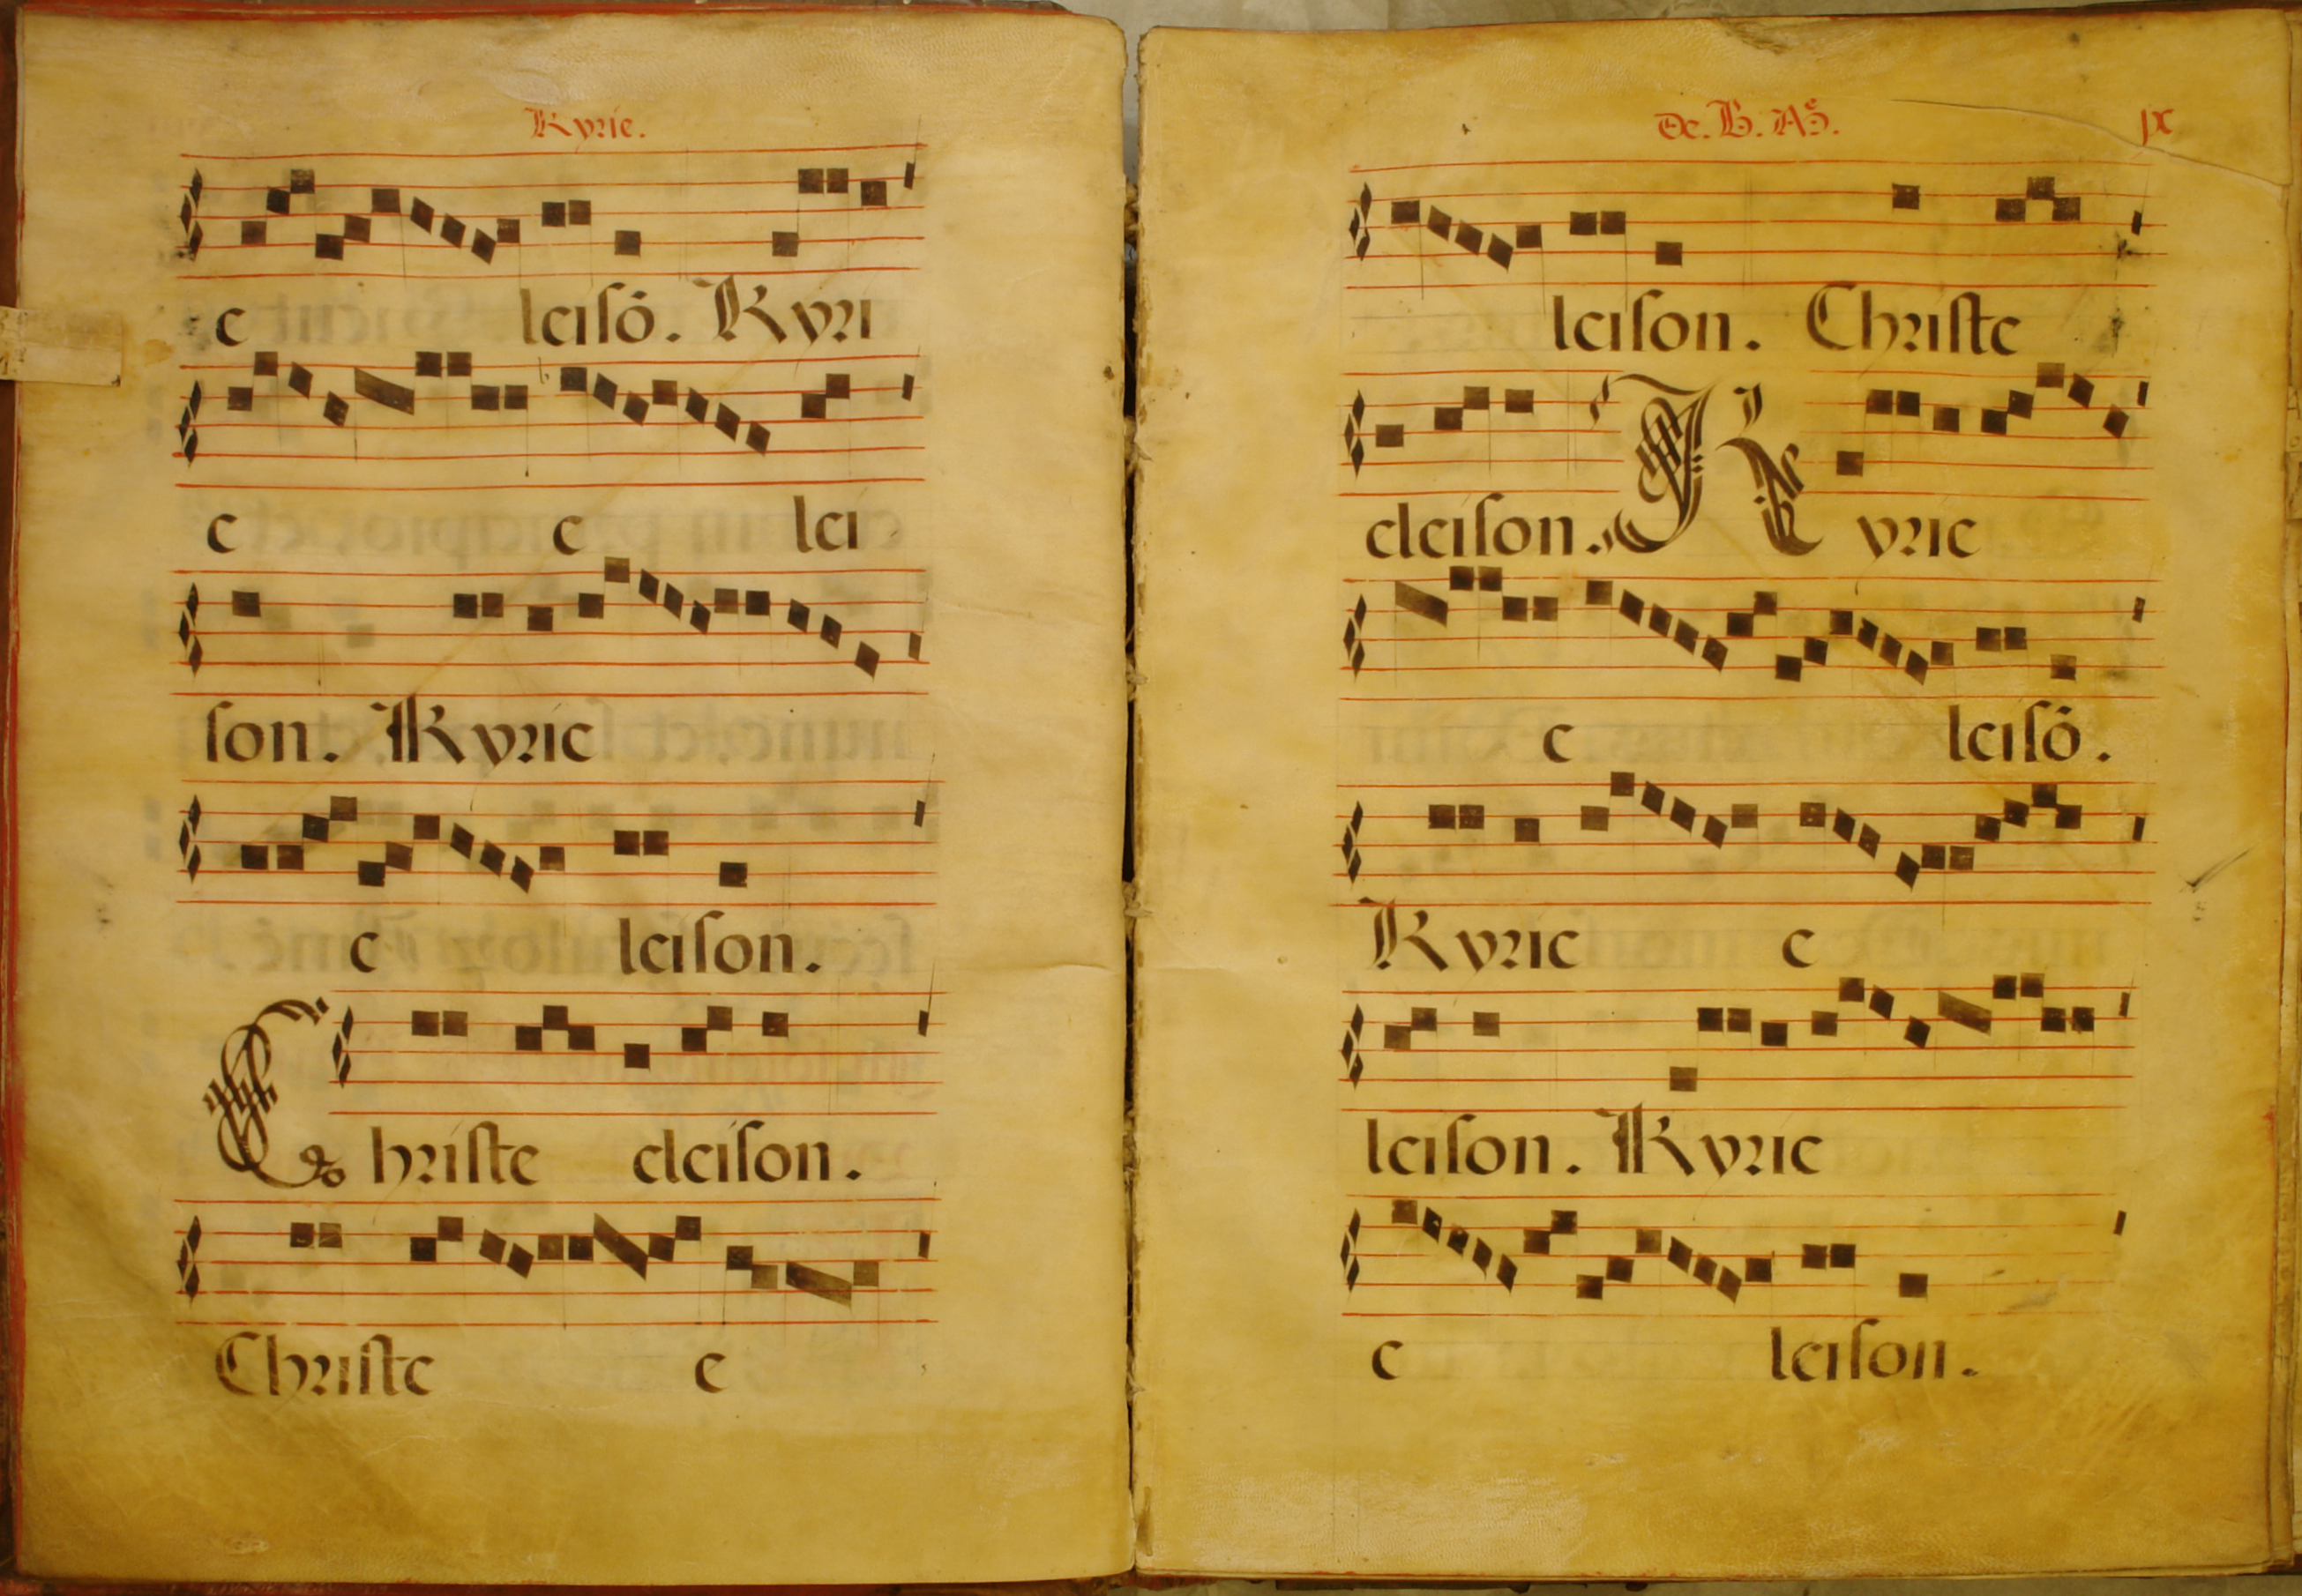 Kyrie.
e leiſō. Kyri
e e lei
ſon. Kyrie
e leiſon.
Chriſte eleiſon.
Chriſte e
De. B. Aȝ. IX
leiſon. Chriſte
eleiſon. Kyrie
e leiſō.
Kyrie e
leiſon. Kyrie
e leiſon.